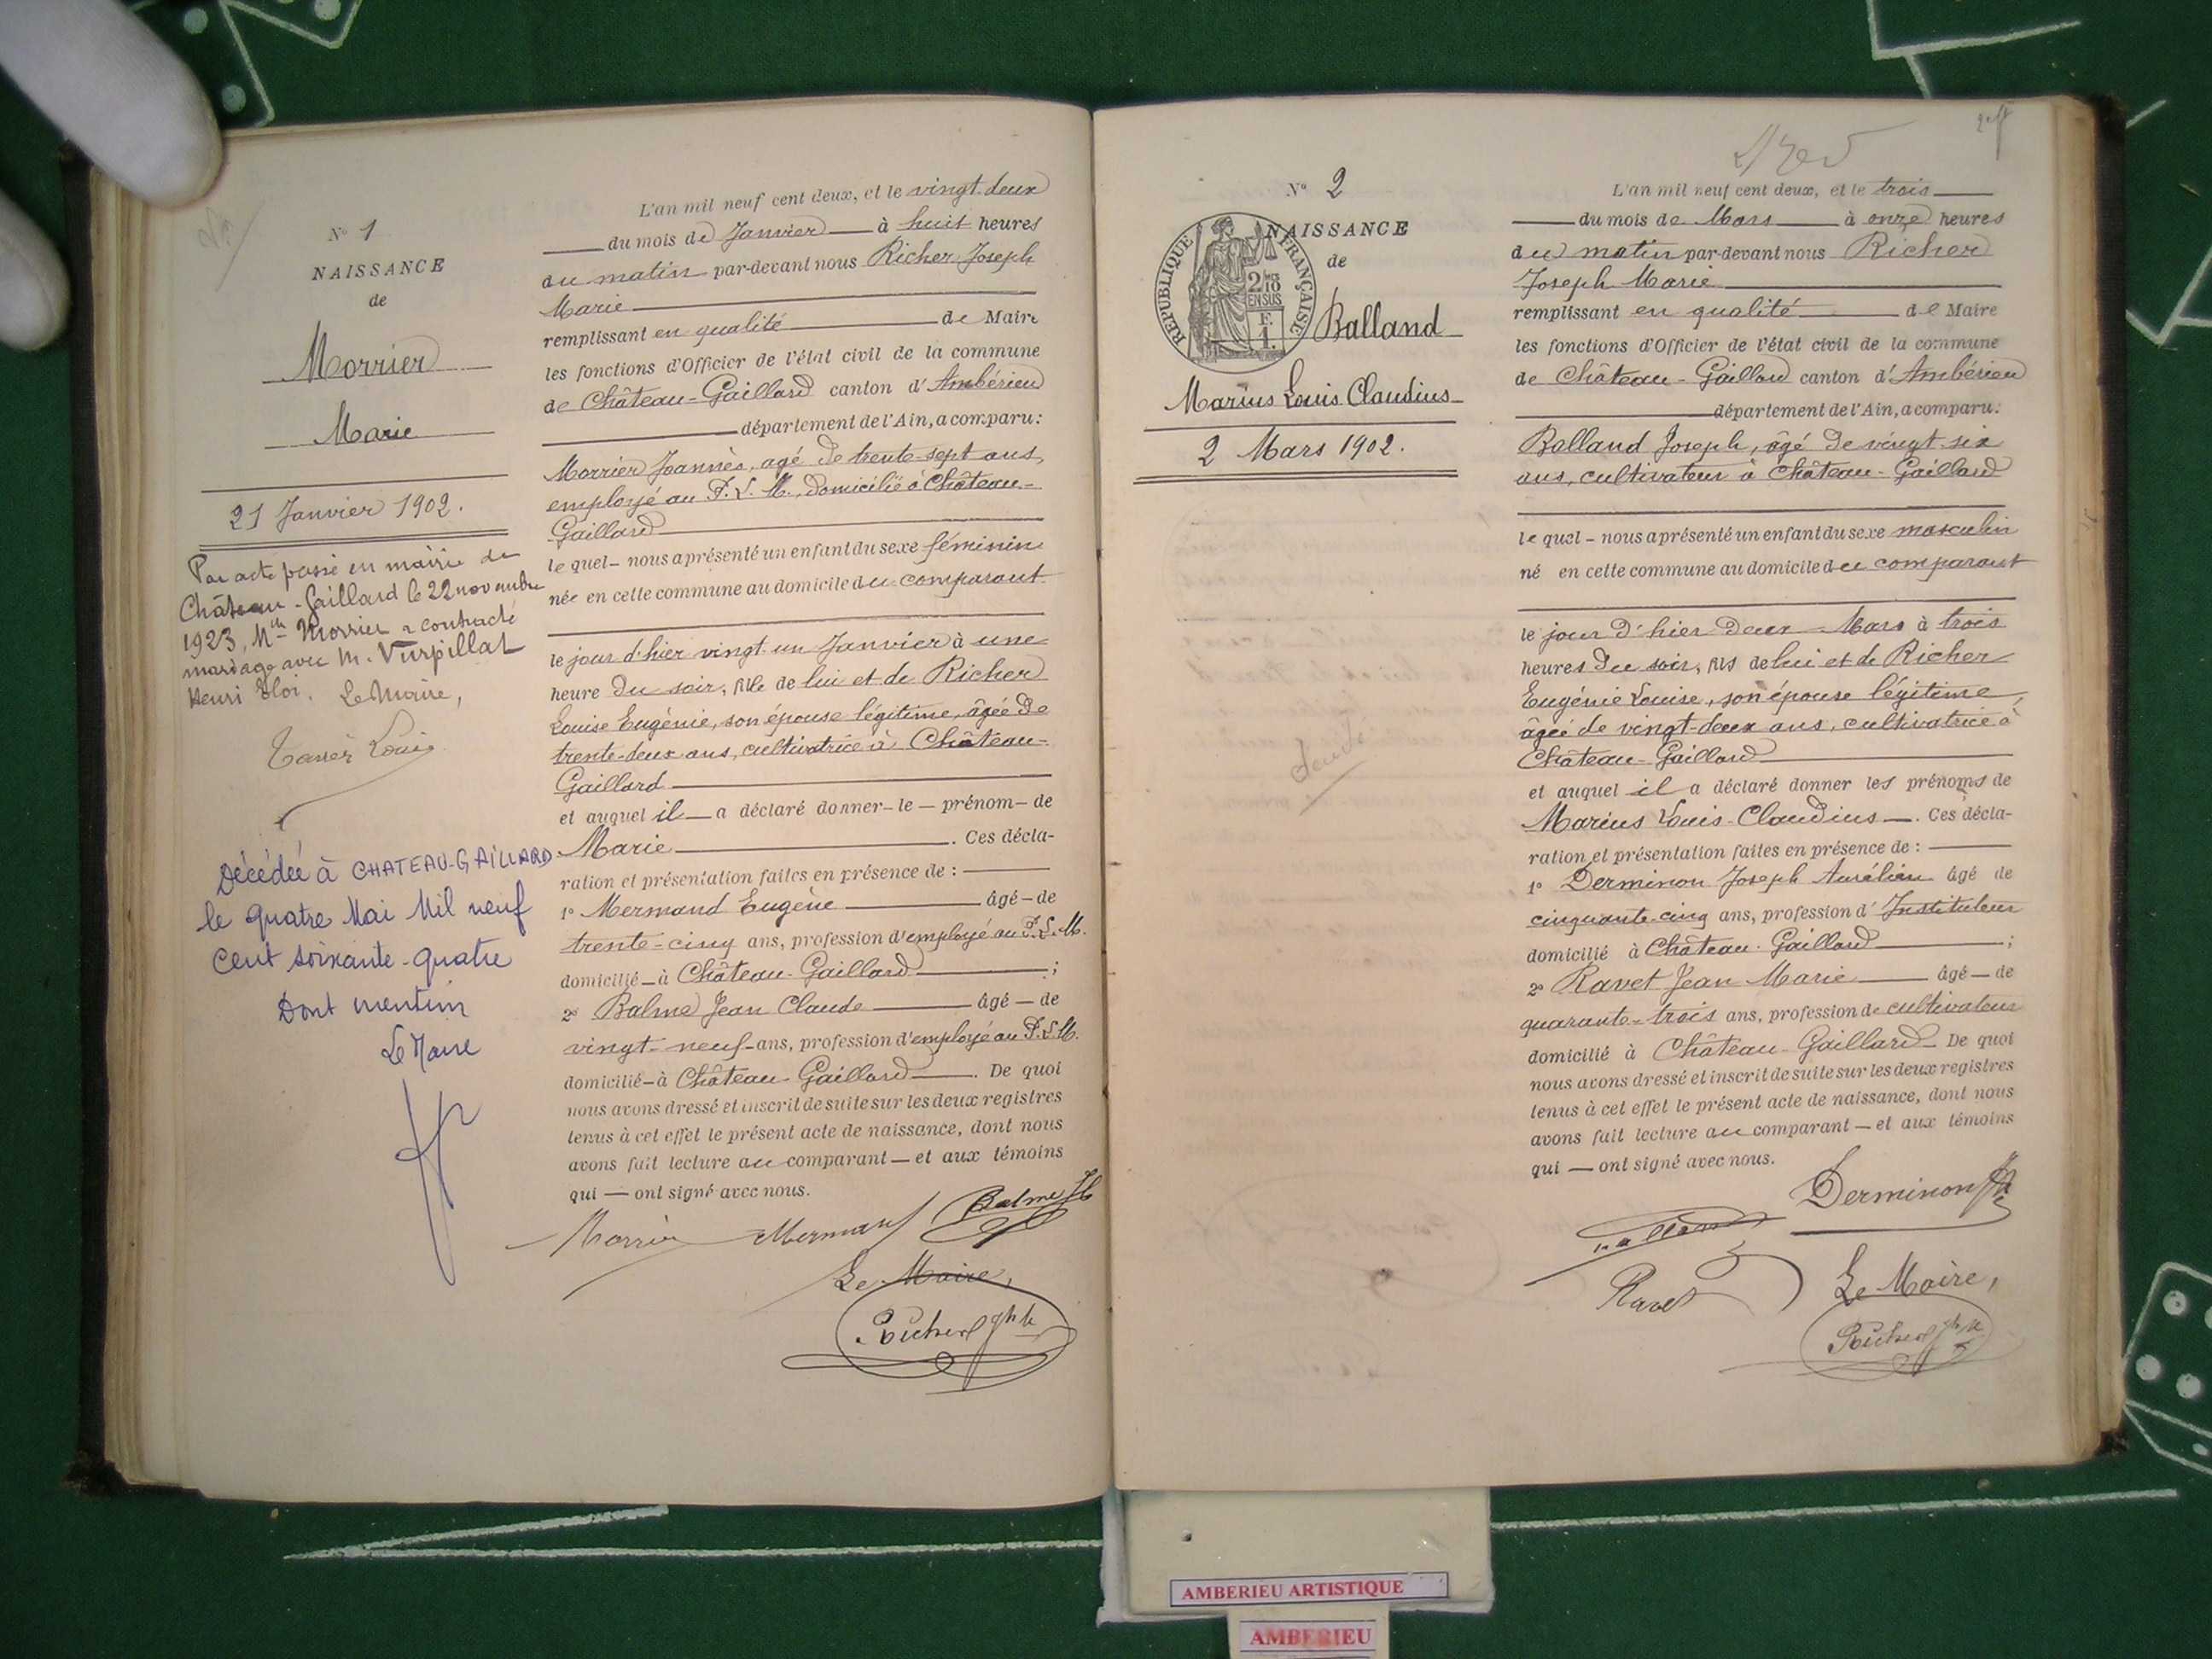 N° 1
NAISSANCE
de
Morrier
Marie
21 Janvier 1902.
Par acte passé en mairie de
Château-Gaillard le 22 novembre
1923, Mlle Morrier a contracté
mariage avec M. Vurpillat
Henri Eloi. Le Maire,
Louis
Décédée à CHATEAU-GAILLARD
le quatre Mai Mil neuf
cent soixante-quatre
Dont mention
Le Maire
L'an mil neuf cent deux, et le vingt-deux
du mois de Janvier à huit heures
du matin par-devant nous Richer Joseph
Marie
remplissant en qualité de Maire
les fonctions d'Officier de l'état civil de la commune
de Château-Gaillard canton d'Ambérieu
département de l'Ain, a comparu:
Morrier Joannès, agé de trente-sept ans,
employé au P. L. M., domicilié à Château-
Gaillard
le quel – nous a présenté un enfant du sexe féminin
née en cette commune au domicile du comparant
le jour d'hier vingt-un Janvier à une
heure du soir, fille de lui et de Richer
Louise Eugénie, son épouse légitime, âgée de
trente-deux ans, cultivatrice à Château-
Gaillard
et auquel il a déclaré donner – le – prénom – de
Marie. Ces décla-
ration et présentation faites en présence de :
1° Mermand Eugène âgé – de
trente-cinq ans, profession d'employé au P. L. M.
domicilié – à Château-Gaillard ;
2° Balme Jean Claude âgé – de
vingt-neuf ans, profession d'employé au P. L. M.
domicilié – à Château-Gaillard. De quoi
nous avons dressé et inscrit de suite sur les deux registres
tenus à cet effet le présent acte de naissance, dont nous
avons fait lecture au comparant – et aux témoins
qui – ont signé avec nous.
Morrier Mermand Balme
Le Maire,
Richer
N° 2
NAISSANCE
de
RÉPUBLIQUE FRANÇAISE
2/10
EN SUS
F.
1.
Balland
Marius Louis Claudius
2 Mars 1902.
L'an mil neuf cent deux, et le trois
du mois de Mars à onze heures
du matin par-devant nous Richer
Joseph Marie
remplissant en qualité de Maire
les fonctions d'Officier de l'état civil de la commune
de Château-Gaillard canton d'Ambérieu
département de l'Ain, a comparu:
Balland Joseph, âgé de vingt-six
ans, cultivateur à Château-Gaillard
le quel – nous a présenté un enfant du sexe masculin
né en cette commune au domicile du comparant
le jour d'hier deux Mars à trois
heures du soir, fils de lui et de Richer
Eugénie Louise, son épouse légitime,
âgée de vingt-deux ans, cultivatrice à
Château-Gaillard
et auquel il a déclaré donner les prénoms de
Marius Louis Claudius. Ces décla-
ration et présentation faites en présence de :
1° Derminon Joseph Aurélien âgé de
cinquante-cinq ans, profession d'Instituteur
domicilié à Château-Gaillard ;
2° Ravet Jean Marie âgé – de
quarante-trois ans, profession de cultivateur
domicilié à Château-Gaillard. De quoi
nous avons dressé et inscrit de suite sur les deux registres
tenus à cet effet le présent acte de naissance, dont nous
avons fait lecture au comparant – et aux témoins
qui – ont signé avec nous.
Derminon
Balland
Ravet
Le Maire,
Richer
AMBERIEU ARTISTIQUE
AMBERIEU